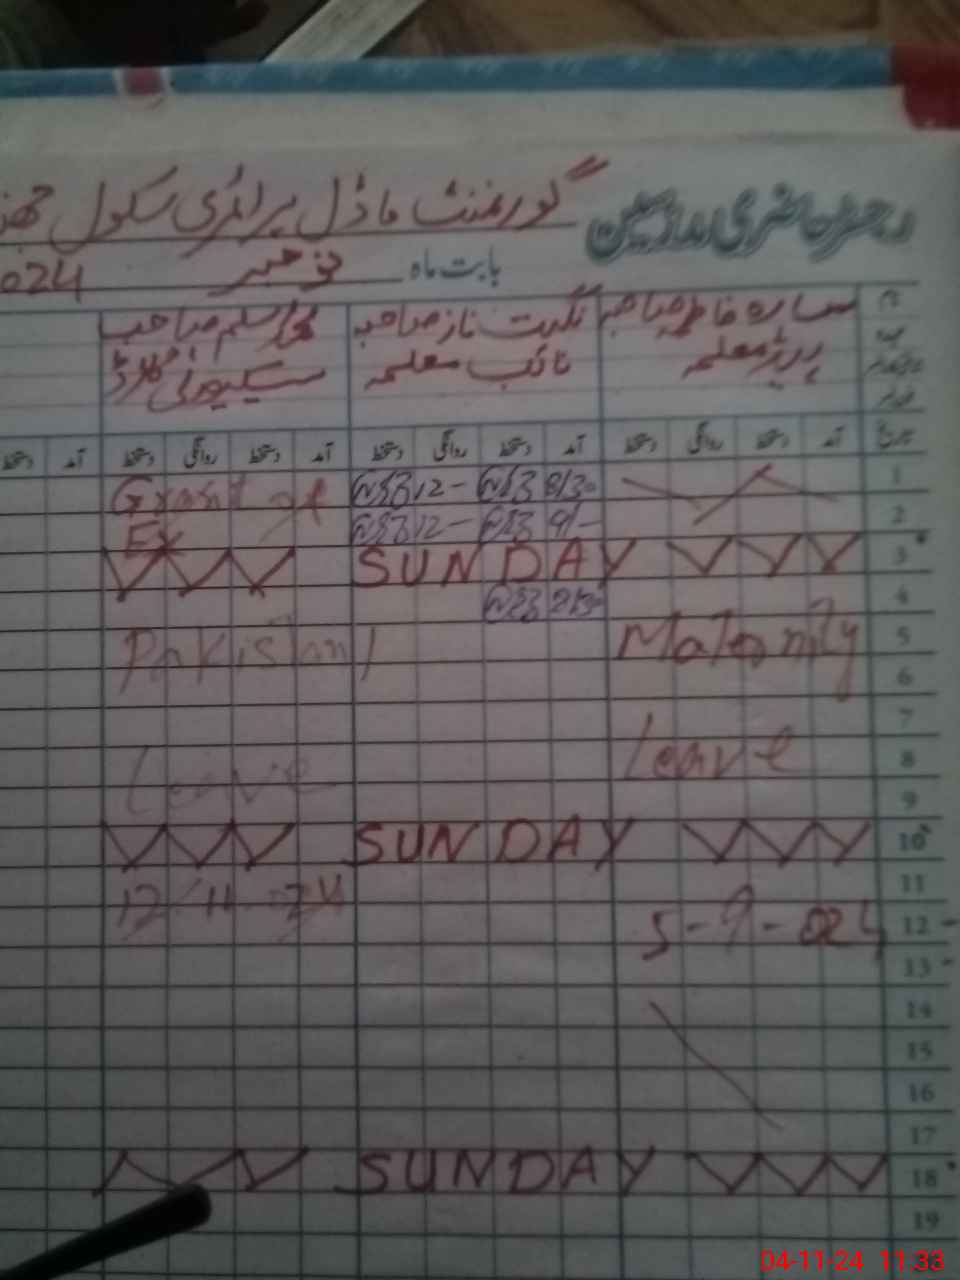 رجسٹر حاضری مدرسین گورنمنٹ ماڈل پرائمری سکول
بابت ماہ نومبر 024
نام سارہ فاطمہ صاحبہ نگہت ناز صاحبہ محمد اسلم صاحب
عہدہ معلمہ نائب معلمہ سیکیورٹی گارڈ
تاریخ آمد دستخط روانگی دستخط آمد دستخط روانگی دستخط آمد دستخط روانگی دستخط آمد دستخط
1 8/30 12- Grant of
2 9/- 12- Ex
3 SUNDAY
4 8/30
5 Maternity Pakistan
6
7
8 Leave Leave
9
10 SUNDAY
11 12/11-24
12 5-9-024
13
14
15
16
17
18 SUNDAY
19
04-11-24 11:33